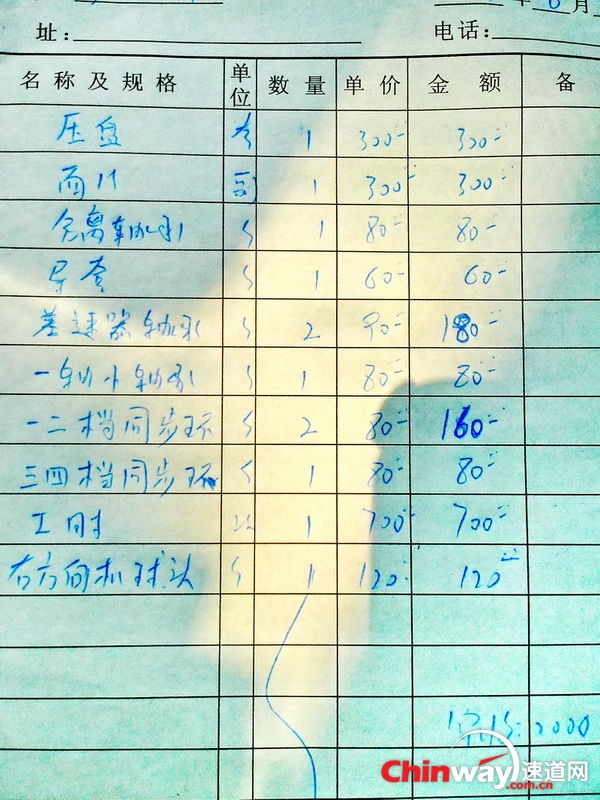 年 6 月
址: 电话:
名称及规格 单位 数量 单价 金额 备
压盘 1 300 300
面片 副 1 300 300
分离轴承 1 80 80
导套 1 60 60
差速器轴承 2 90 180
一轴小轴承 1 80 80
一二档同步环 2 80 160
三四档同步环 1 80 80
工时 1 700 700
右方向机球头 1 120 120
2000
Chinway 速道网
.com.cn